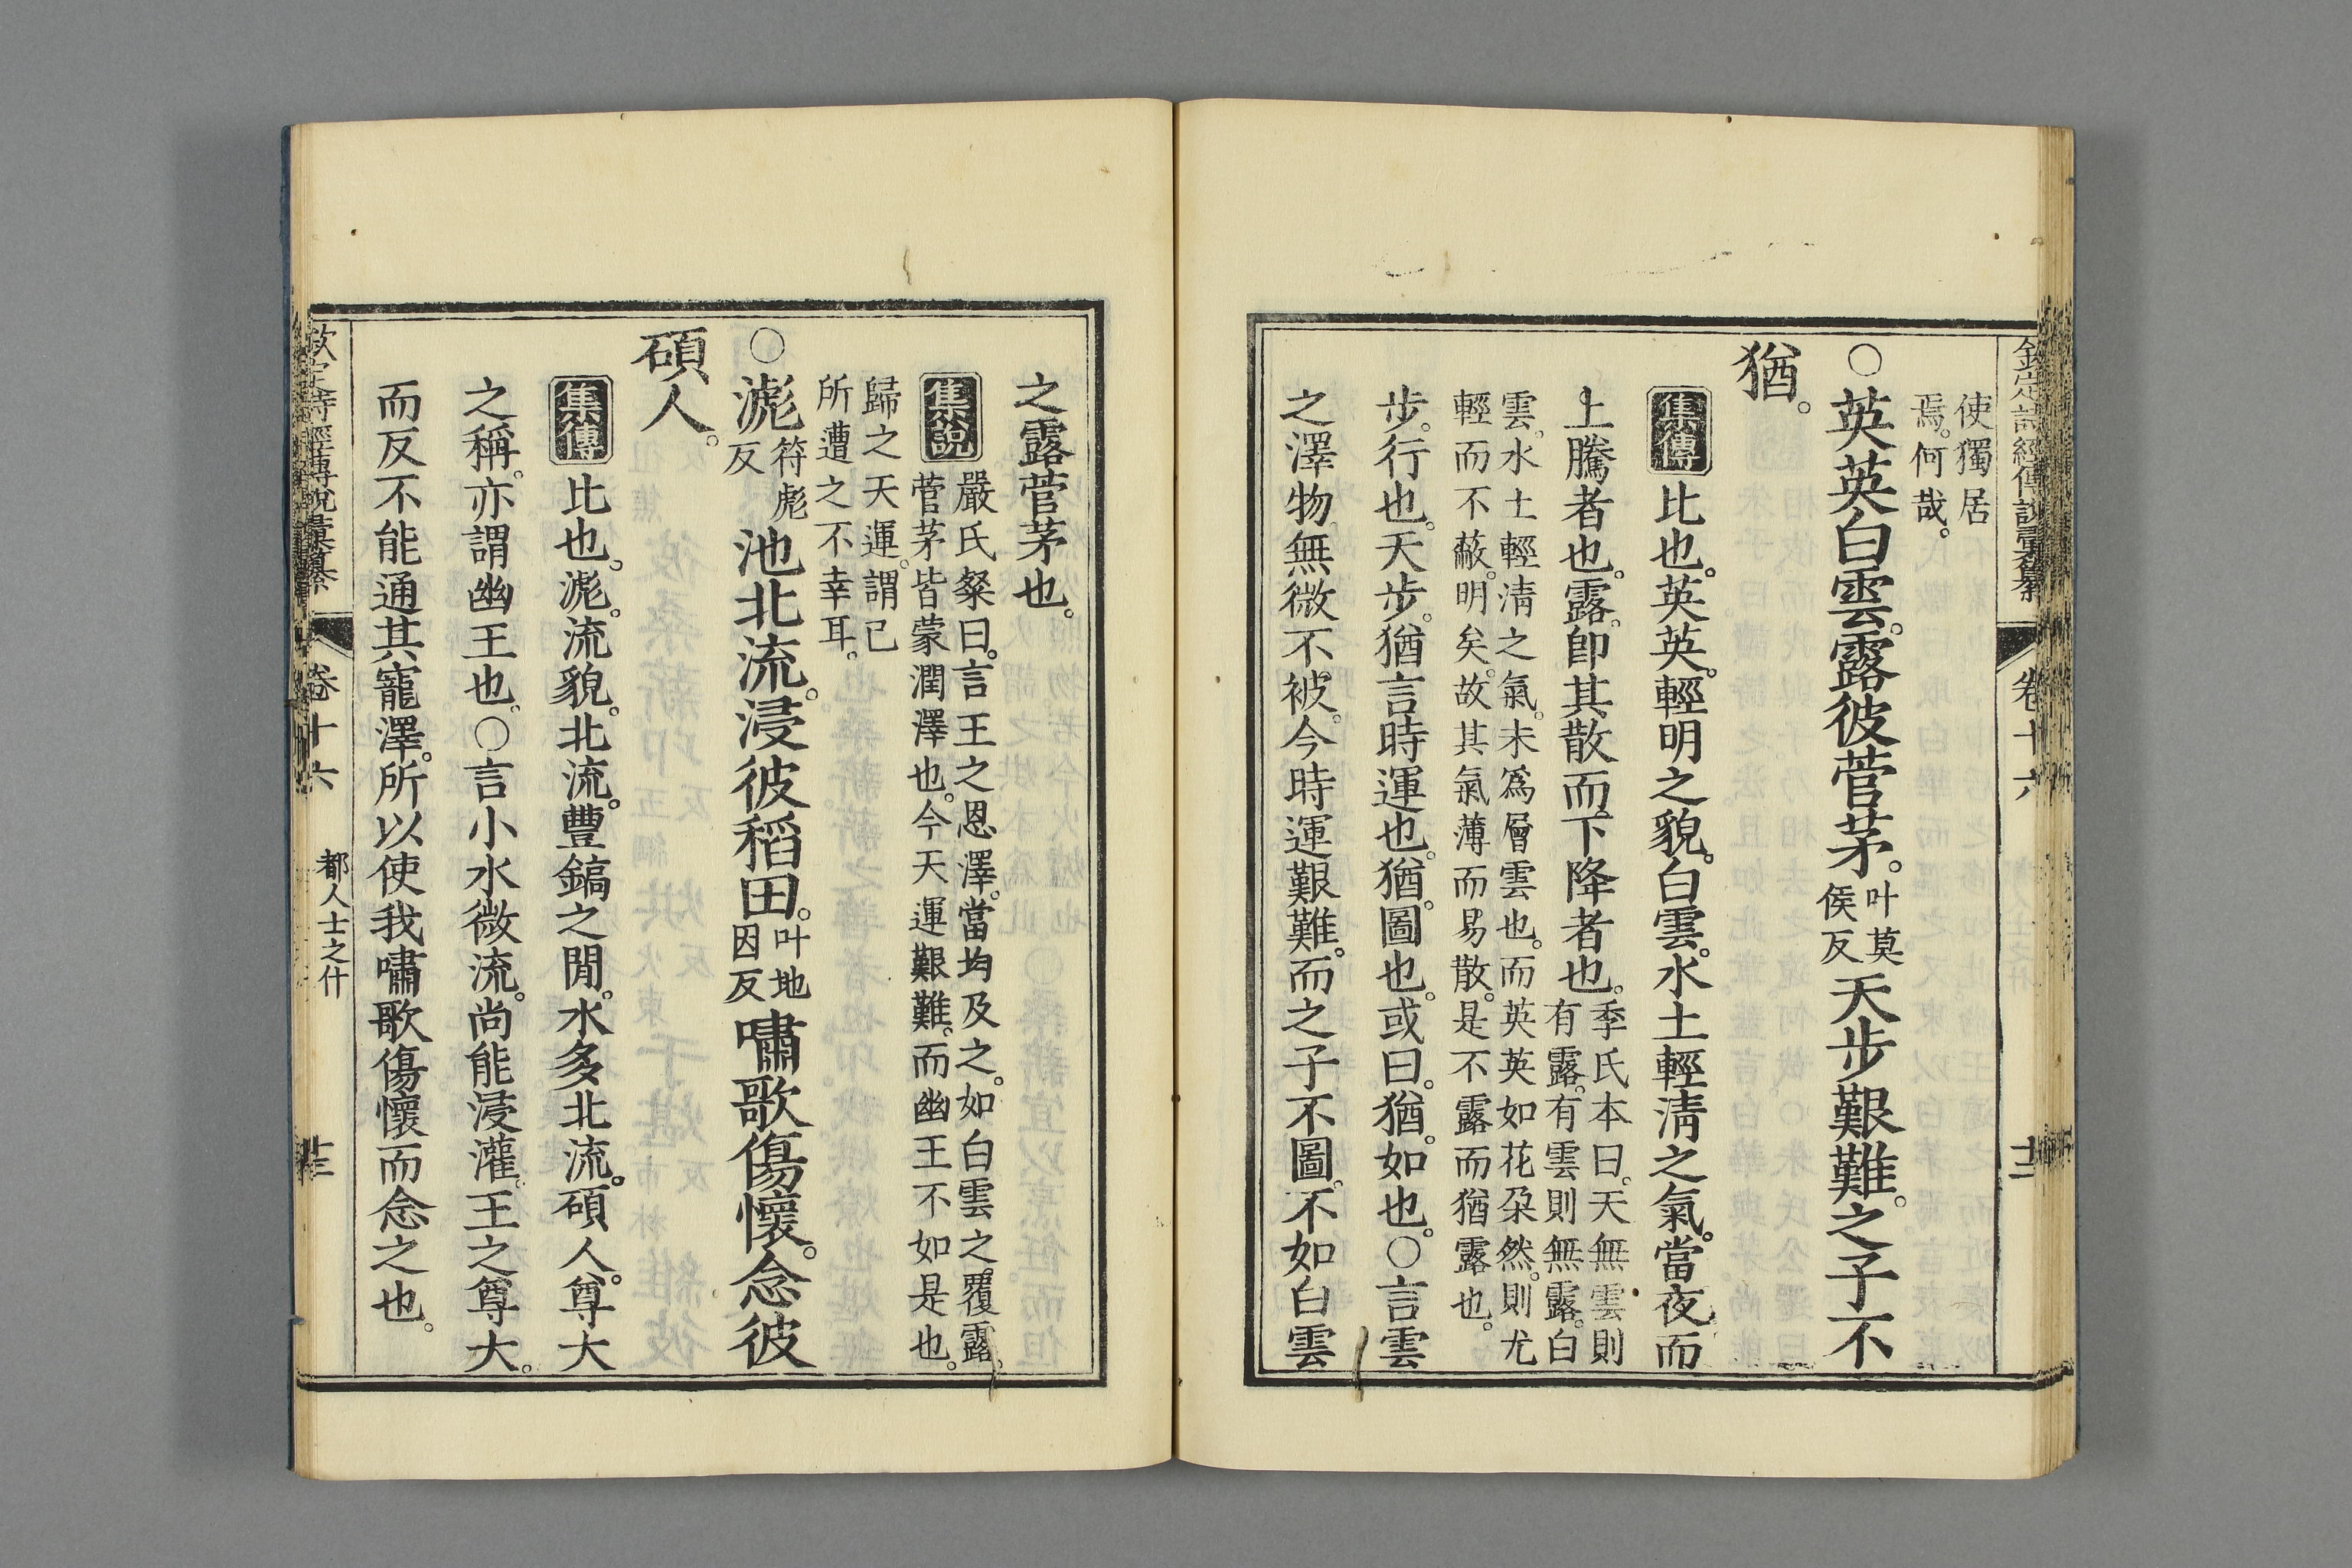 欽定詩經傳說彙纂 卷十六
使獨居
焉。何哉。
○英英白雲。露彼菅茅。叶莫侯反天步艱難。之子不
猶。
集傳比也。英英。輕明之貌。白雲。水土輕淸之氣。當夜而
上騰者也。露。卽其散而下降者也。季氏本曰。天無雲則有露。有雲則無露。白
雲。水土輕淸之氣。未爲層雲也。而英英如花朶然。則尤
輕而不蔽。明矣。故其氣薄而易散。是不露而猶露也。
步。行也。天步。猶言時運也。猶。圖也。或曰。猶。如也。○言雲
之澤物。無微不被。今時運艱難。而之子不圖。不如白雲
之露菅茅也。
集說嚴氏粲曰。言王之恩澤。當均及之。如白雲之覆露。
菅茅皆蒙潤澤也。今天運艱難。而幽王不如是也。
歸之天運。謂已
所遭之不幸耳。
○滮符彪反池北流。浸彼稻田。叶地因反嘯歌傷懷。念彼
碩人。
集傳比也。滮。流貌。北流。豐鎬之閒。水多北流。碩人。尊大
之稱。亦謂幽王也。○言小水微流。尚能浸灌。王之尊大。
而反不能通其寵澤。所以使我嘯歌傷懷而念之也。
欽定詩經傳說彙纂 卷十六 都人士之什